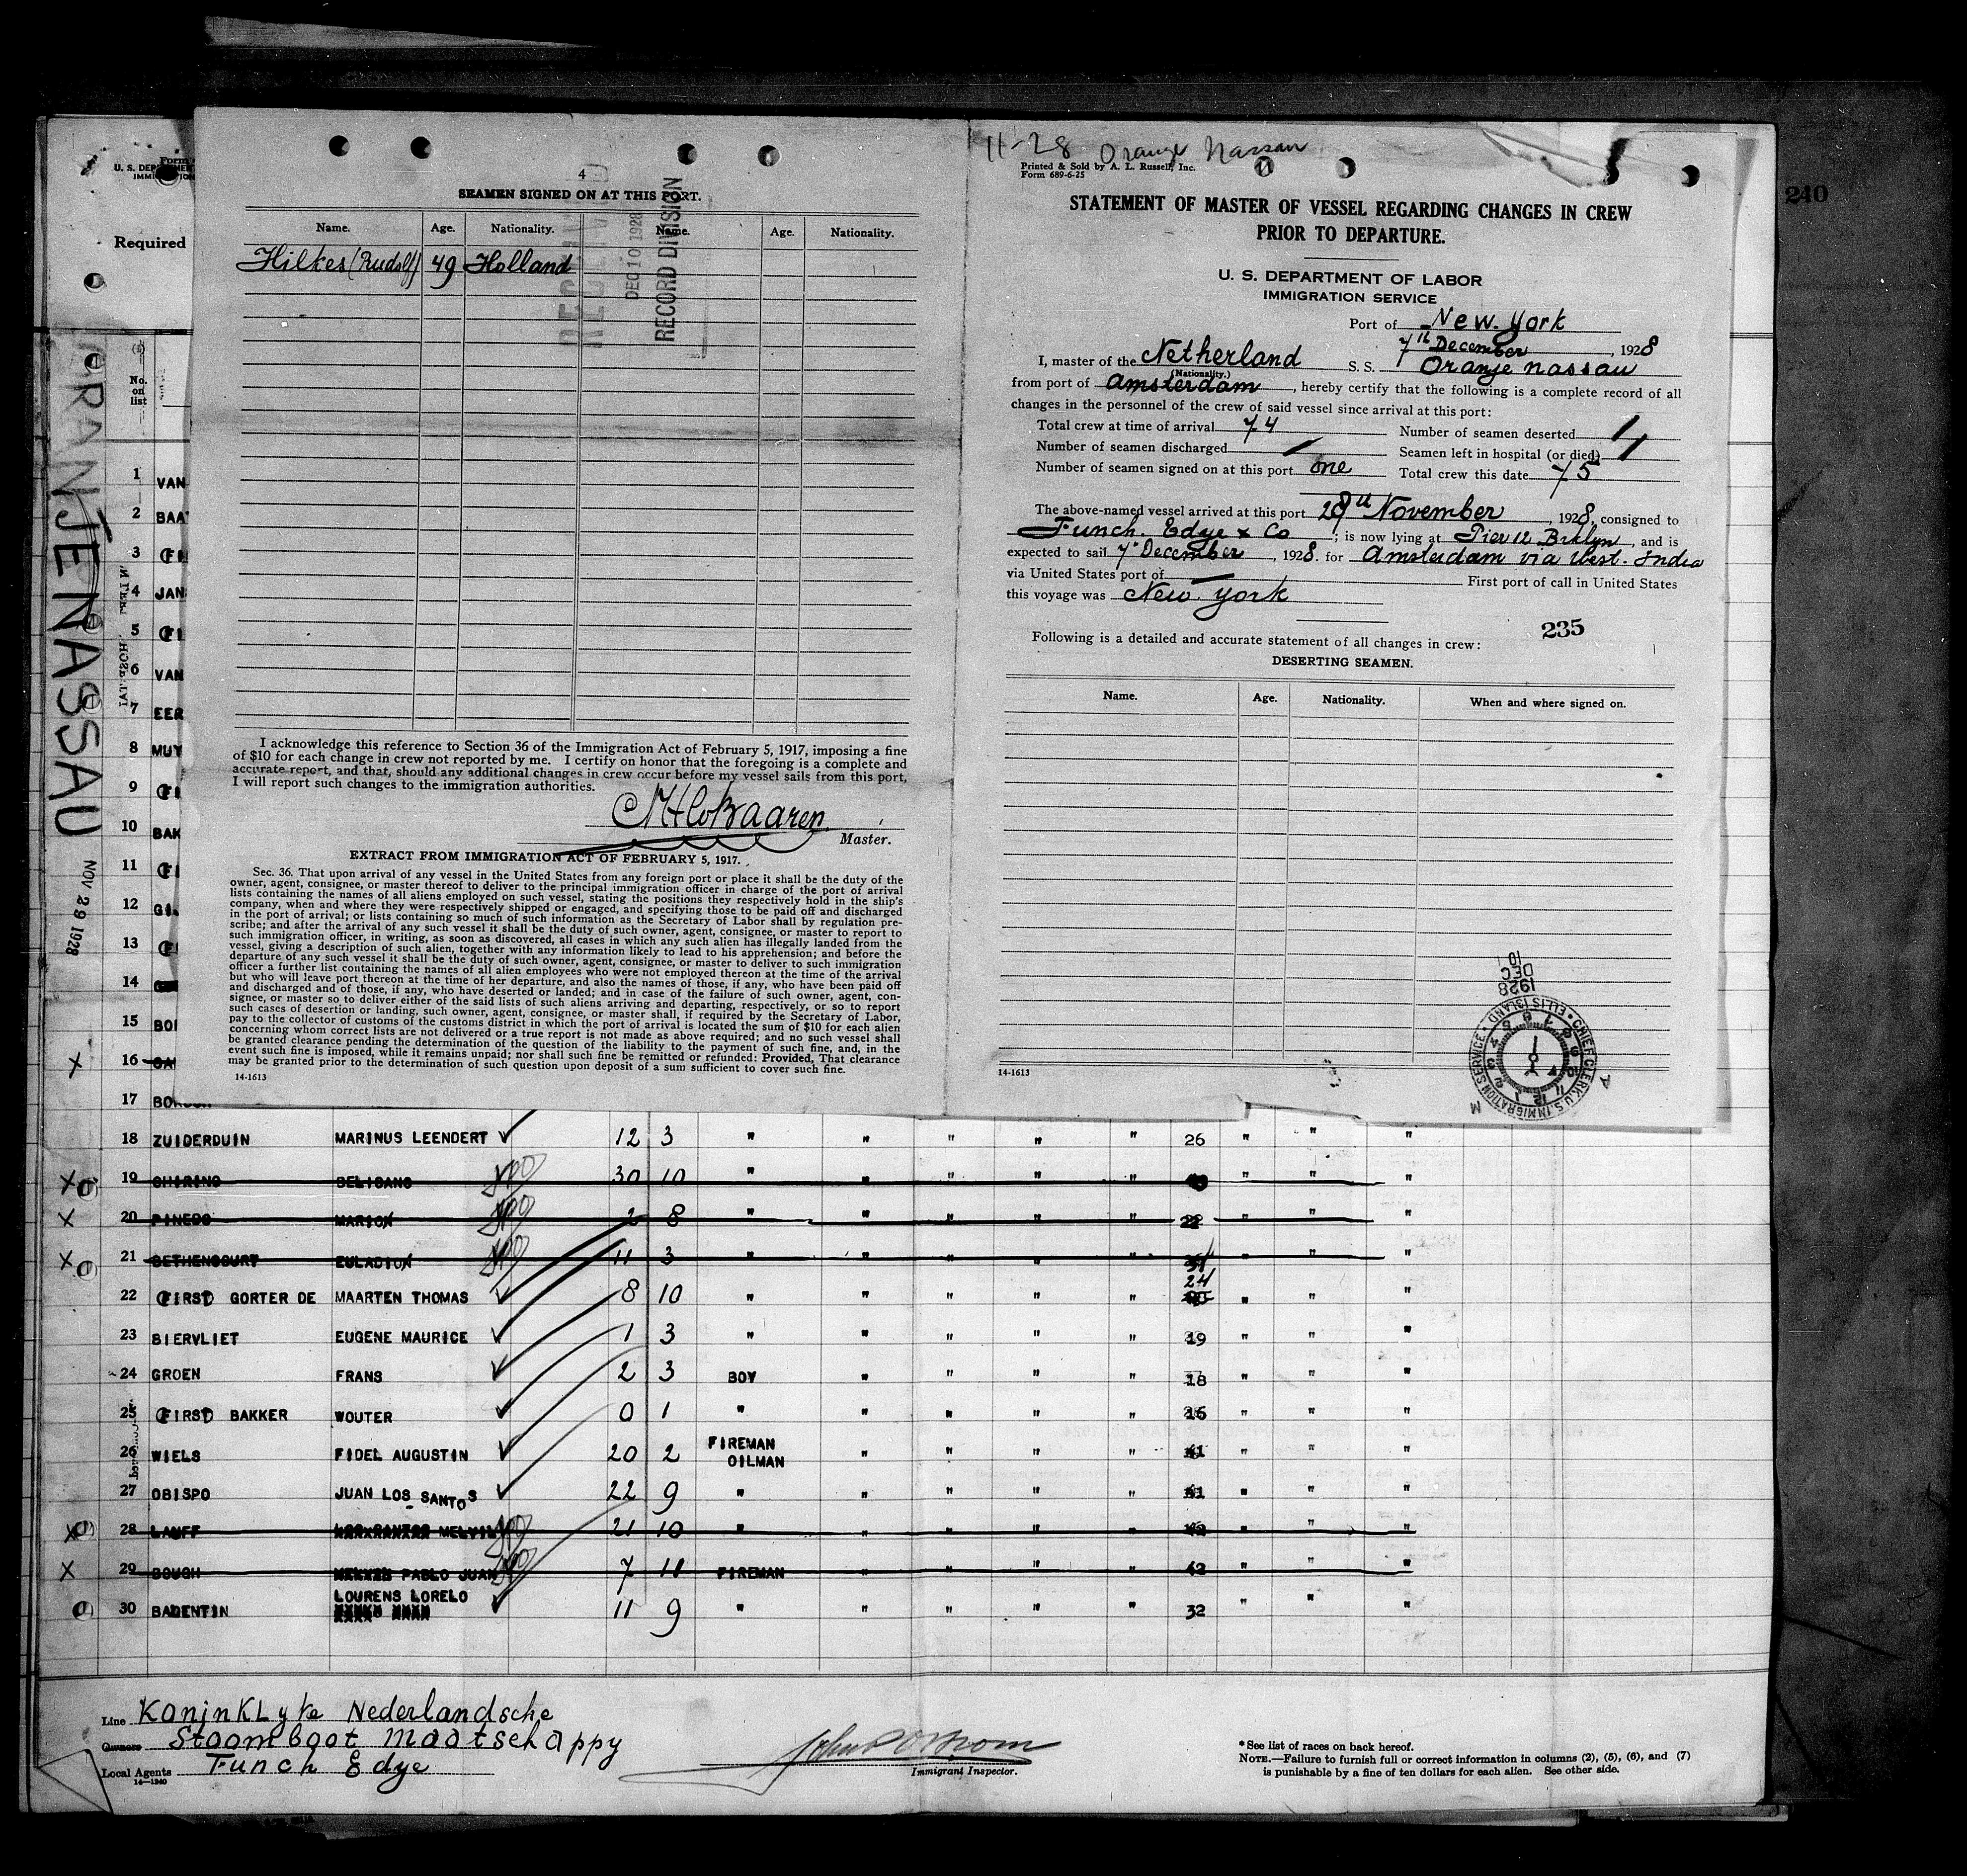 240
11-28 Orange Nassau
Form
U. S. DEP
IMMI
Required
(1)
No.
on
list
ORANJENASSAU
NOV 29 1928
1 VAN
2 BAA
3 FI
4 JAN
5 FI
6 VAN
7 EER
8 MUY
9 FI
10 BAK
11 FI
12
13 F
14
15 BO
X 16 GA
17
4
SEAMEN SIGNED ON AT THIS PORT.
Name. Age. Nationality. Name. Age. Nationality.
Hilkes (Rudolf) 49 Holland
RECEIVED
DEC 10 1928
RECORD DIVISION
I acknowledge this reference to Section 36 of the Immigration Act of February 5, 1917, imposing a fine
of $10 for each change in crew not reported by me. I certify on honor that the foregoing is a complete and
accurate report, and that, should any additional changes in crew occur before my vessel sails from this port,
I will report such changes to the immigration authorities.
Master.
EXTRACT FROM IMMIGRATION ACT OF FEBRUARY 5, 1917.
Sec. 36. That upon arrival of any vessel in the United States from any foreign port or place it shall be the duty of the
owner, agent, consignee, or master thereof to deliver to the principal immigration officer in charge of the port of arrival
lists containing the names of all aliens employed on such vessel, stating the positions they respectively hold in the ship's
company, when and where they were respectively shipped or engaged, and specifying those to be paid off and discharged
in the port of arrival; or lists containing so much of such information as the Secretary of Labor shall by regulation pre-
scribe; and after the arrival of any such vessel it shall be the duty of such owner, agent, consignee, or master to report to
such immigration officer, in writing, as soon as discovered, all cases in which any such alien has illegally landed from the
vessel, giving a description of such alien, together with any information likely to lead to his apprehension; and before the
departure of any such vessel it shall be the duty of such owner, agent, consignee, or master to deliver to such immigration
officer a further list containing the names of all alien employees who were not employed thereon at the time of the arrival
but who will leave port thereon at the time of her departure, and also the names of those, if any, who have been paid off
and discharged and of those, if any, who have deserted or landed; and in case of the failure of such owner, agent, con-
signee, or master so to deliver either of the said lists of such aliens arriving and departing, respectively, or so to report
such cases of desertion or landing, such owner, agent, consignee, or master shall, if required by the Secretary of Labor,
pay to the collector of customs of the customs district in which the port of arrival is located the sum of $10 for each alien
concerning whom correct lists are not delivered or a true report is not made as above required; and no such vessel shall
be granted clearance pending the determination of the question of the liability to the payment of such fine, and, in the
event such fine is imposed, while it remains unpaid; nor shall such fine be remitted or refunded: Provided, That clearance
may be granted prior to the determination of such question upon deposit of a sum sufficient to cover such fine.
14-1613
Printed & Sold by A. L. Russell, Inc.
Form 689-6-25
STATEMENT OF MASTER OF VESSEL REGARDING CHANGES IN CREW
PRIOR TO DEPARTURE.
U. S. DEPARTMENT OF LABOR
IMMIGRATION SERVICE
Port of New York
7th December, 1928
I, master of the Netherland S. S. Oranje nassau
(Nationality.)
from port of Amsterdam, hereby certify that the following is a complete record of all
changes in the personnel of the crew of said vessel since arrival at this port:
Total crew at time of arrival 74 Number of seamen deserted /
Number of seamen discharged / Seamen left in hospital (or died) /
Number of seamen signed on at this port one Total crew this date 75
The above-named vessel arrived at this port 29th November, 1928, consigned to
Funch. Edye & Co; is now lying at Pier 12 Brklyn, and is
expected to sail 7th December, 1928. for Amsterdam via West. India
via United States port of — First port of call in United States
this voyage was New York
235
Following is a detailed and accurate statement of all changes in crew:
DESERTING SEAMEN.
Name. Age. Nationality. When and where signed on.
14-1613
1928
DEC
10
CHIEF CLERK, U.S. IMMIGRATION SERVICE • ELLIS ISLAND
18 ZUIDERDUIN MARINUS LEENDERT 12 3 " " " " " 26 " " "
X 19 CHIRINO BELISANO 30 10 " " " " " " " "
X 20 PINEDO MARIO 2 8 " " " " " 22 " " "
X 21 BETHENCOURT EULADIO 11 3 " " " " " 31 " " "
22 FIRST GORTER DE MAARTEN THOMAS 8 10 " " " " " 24 " " "
23 BIERVLIET EUGENE MAURICE 1 3 " " " " " 19 " " "
24 GROEN FRANS 2 3 BOY " " " " 18 " " "
25 FIRST BAKKER WOUTER 0 1 " " " " " 16 " " "
26 WIELS FIDEL AUGUSTIN 20 2 FIREMAN OILMAN " " " " 41 " " "
27 OBISPO JUAN LOS SANTOS 22 9 " " " " " 41 " " "
X 28 LAUFF MELVIL 21 10 " " " " " 42 " " "
X 29 BOUGH PABLO JUAN 7 11 FIREMAN " " " " 42 " " "
LOURENS LORELO
30 BADENTIN 11 9 " " " " " 32 " " "
Line KoninKLyke Nederlandsche
Owners Stoomboot Maatschappy
Local Agents Funch Edye
14-1240
Immigrant Inspector.
*See list of races on back hereof.
NOTE.—Failure to furnish full or correct information in columns (2), (5), (6), and (7)
is punishable by a fine of ten dollars for each alien. See other side.